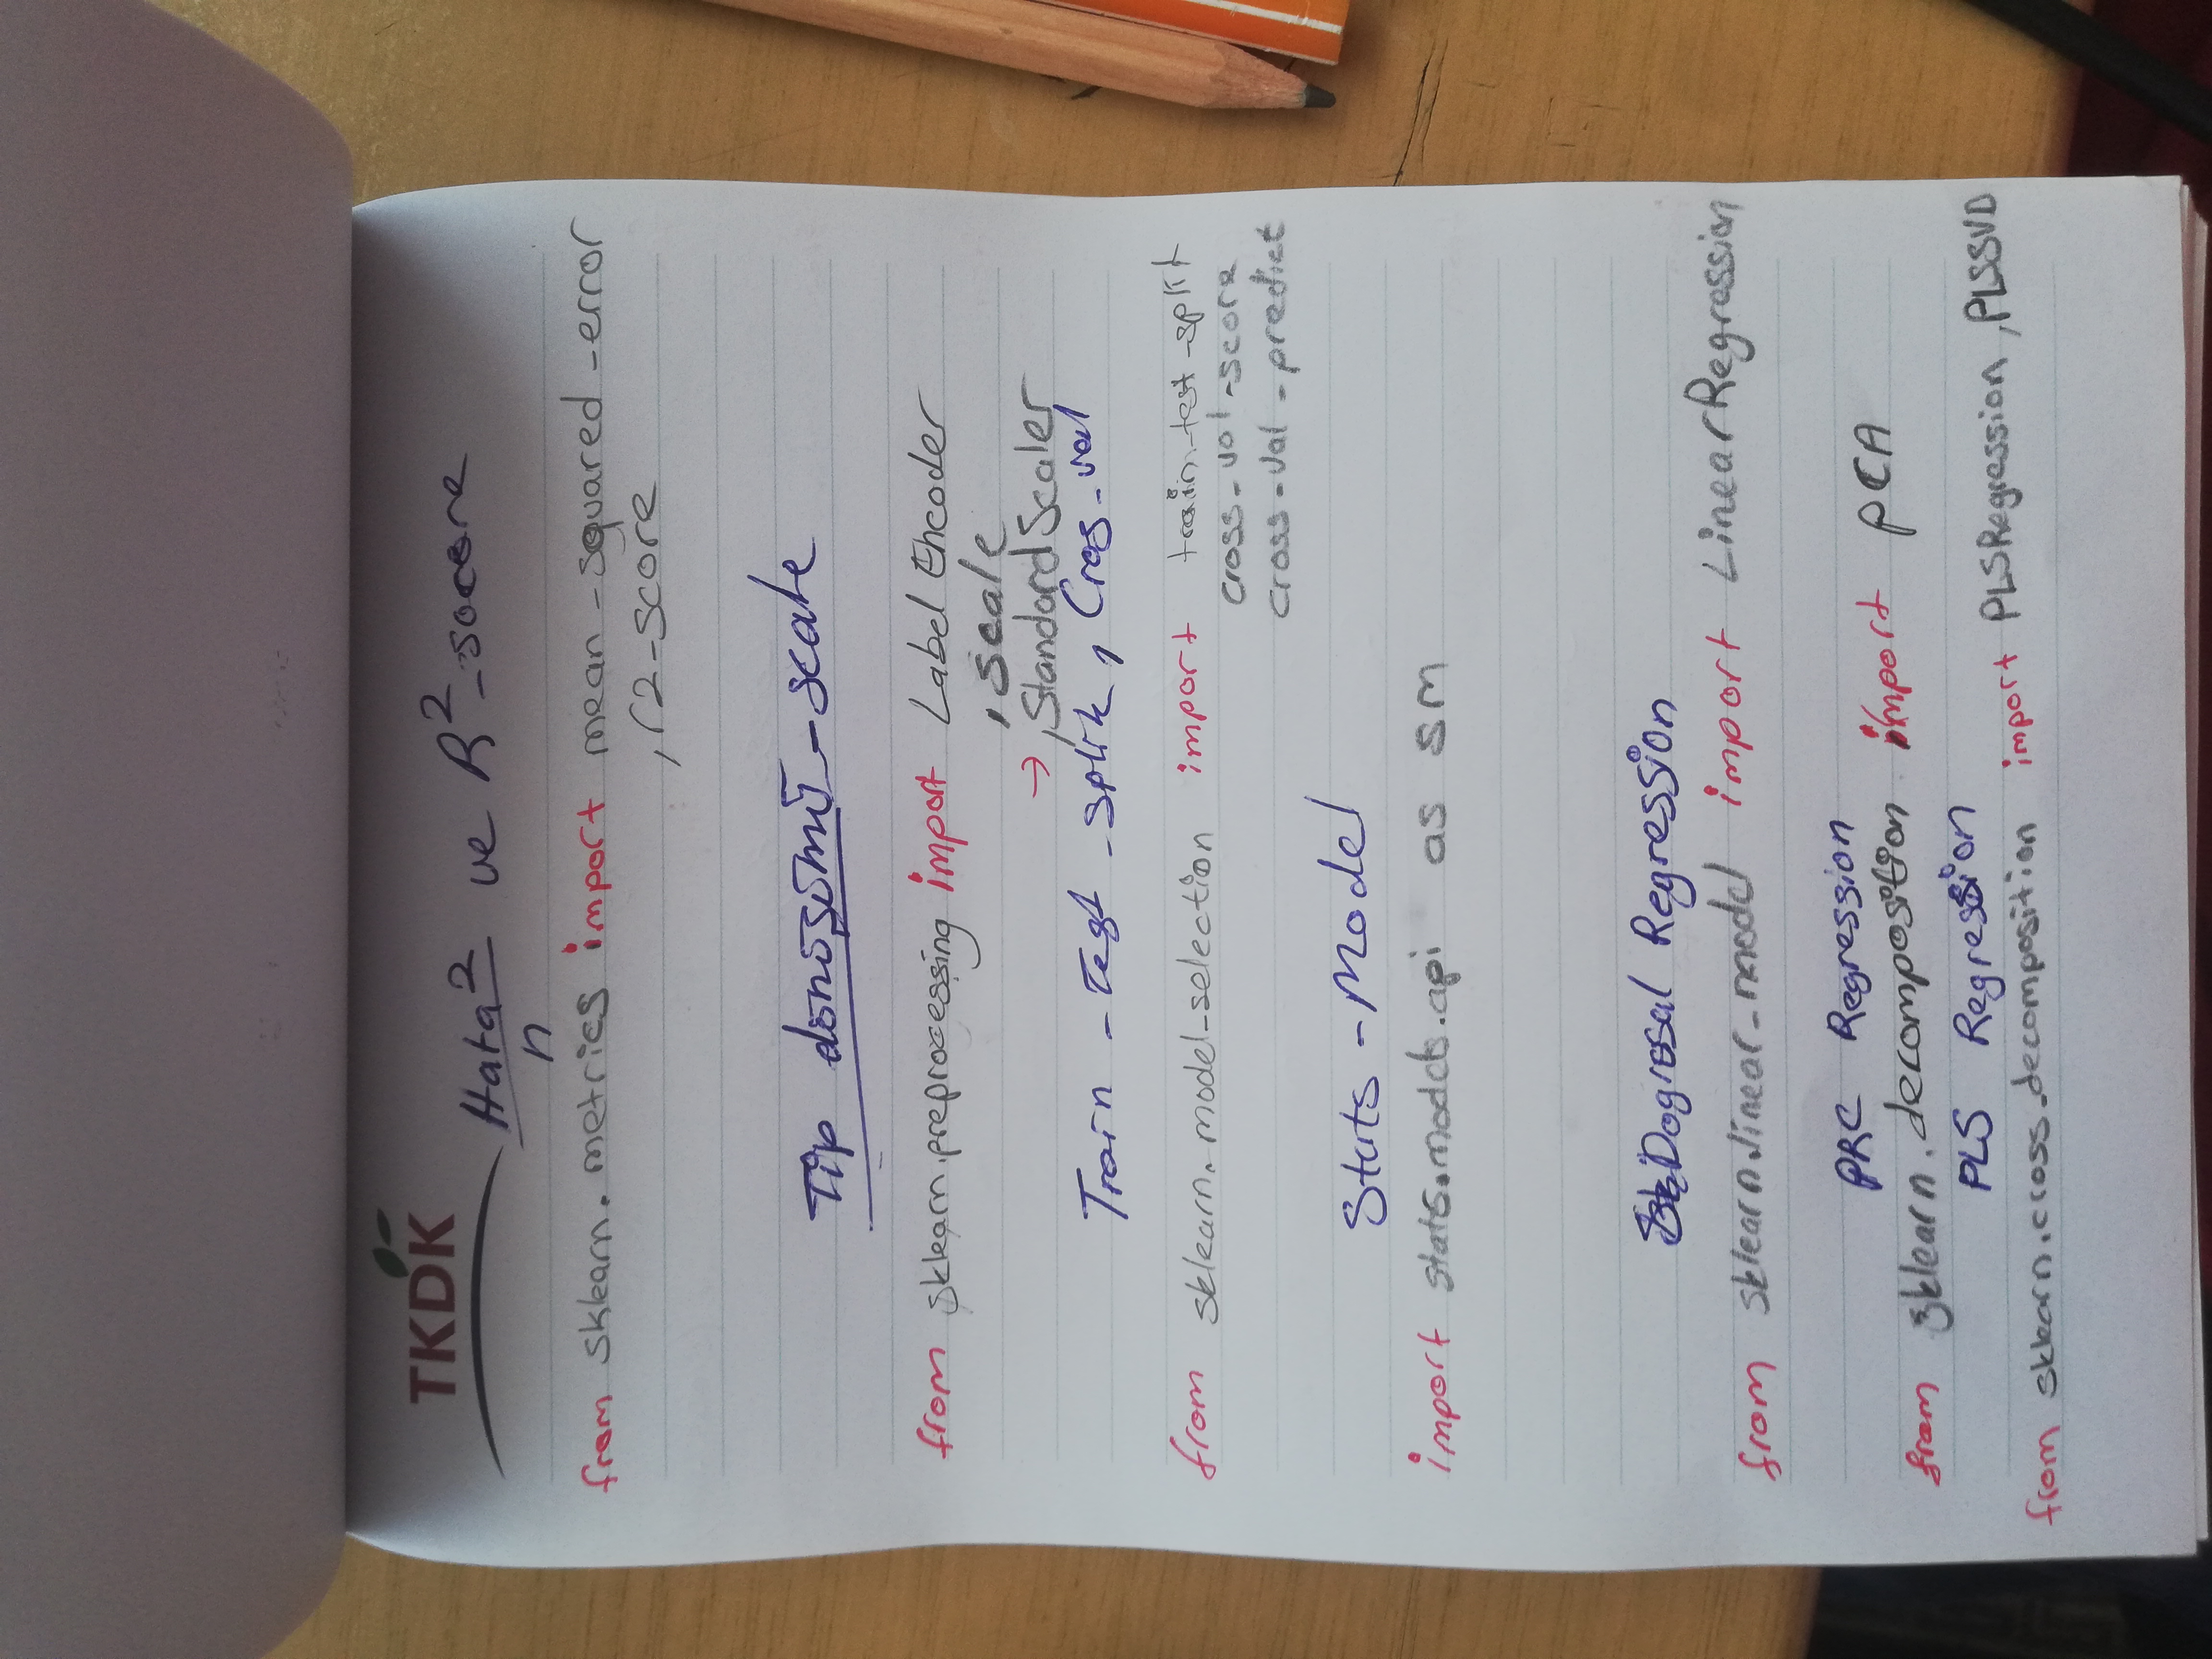 TKDK
Hata²/n ve R²-socore
from sklearn.metrics import mean-squared-error
,r2-score
Tip dönüşümü-scale
from sklearn.preprocessing import Label Encoder
,scale
→ ,StandardScaler
Train-Test-split, Cros-val
from sklearn.model-selection import train-test-split
cross-val-score
cross-val-predict
Stats-Model
import stats.models.api as sm
Dogrusal Regression
from sklearn.linear-model import LinearRegression
PRC Regression
from sklearn.decomposition import PCA
PLS Regression
from sklearn.cross-decomposition import PLSRegression, PLSSVD